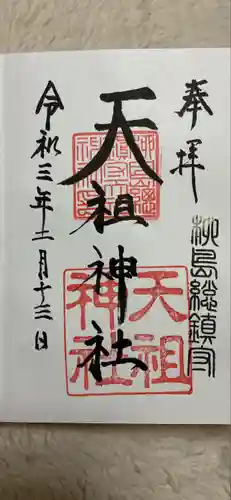 奉拝
柳島総鎮守
天祖神社
令和三年十一月十三日
天祖
神社